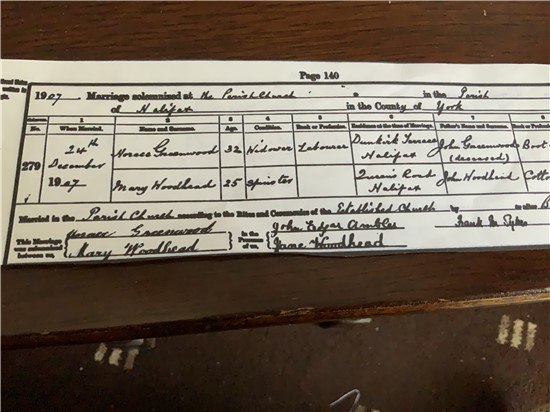 Page 140
1907 Marriage solemnized at the Parish Church in the Parish
of Halifax in the County of York
No. When Married. Name and Surname. Age. Condition. Rank or Profession. Residence at the time of Marriage. Father's Name and Surname.
279 24th December 1907 Horace Greenwood 32 Widower Labourer Dunkirk Terrace Halifax John Greenwood (deceased) Boot
Mary Woodhead 25 Spinster Queen's Road Halifax John Woodhead Cotto
Married in the Parish Church according to the Rites and Ceremonies of the Established Church by
This Marriage was solemnized between us, Horace Greenwood Mary Woodhead in the Presence of us, John Edgar Ambler Jane Woodhead Frank M. Sykes